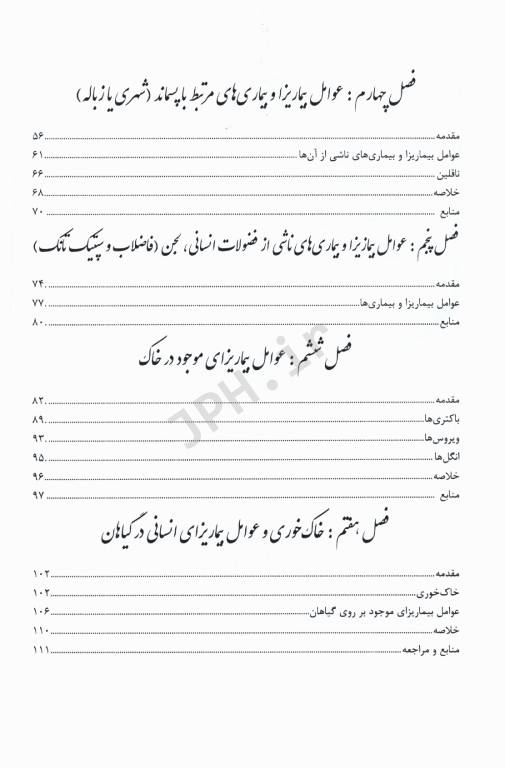 فصل چهارم : عوامل بیماریزا و بیماری‌های مرتبط با پسماند (شهری یا زباله)
مقدمه ۵۶
عوامل بیماریزا و بیماری‌های ناشی از آن‌ها ۶۱
ناقلین ۶۶
خلاصه ۶۸
منابع ۷۰
فصل پنجم : عوامل بیماریزا و بیماری‌های ناشی از فضولات انسانی، لجن (فاضلاب و سپتیک تانک)
مقدمه ۷۴
عوامل بیماریزا و بیماری‌ها ۷۷
منابع ۸۰
فصل ششم : عوامل بیماریزای موجود در خاک
مقدمه ۸۲
باکتری‌ها ۸۹
ویروس‌ها ۹۳
انگل‌ها ۹۵
خلاصه ۹۶
منابع ۹۷
JPH.ir
فصل هفتم : خاک‌خوری و عوامل بیماریزای انسانی در گیاهان
مقدمه ۱۰۲
خاک‌خوری ۱۰۲
عوامل بیماریزای موجود بر روی گیاهان ۱۰۶
خلاصه ۱۱۰
منابع و مراجعه ۱۱۱